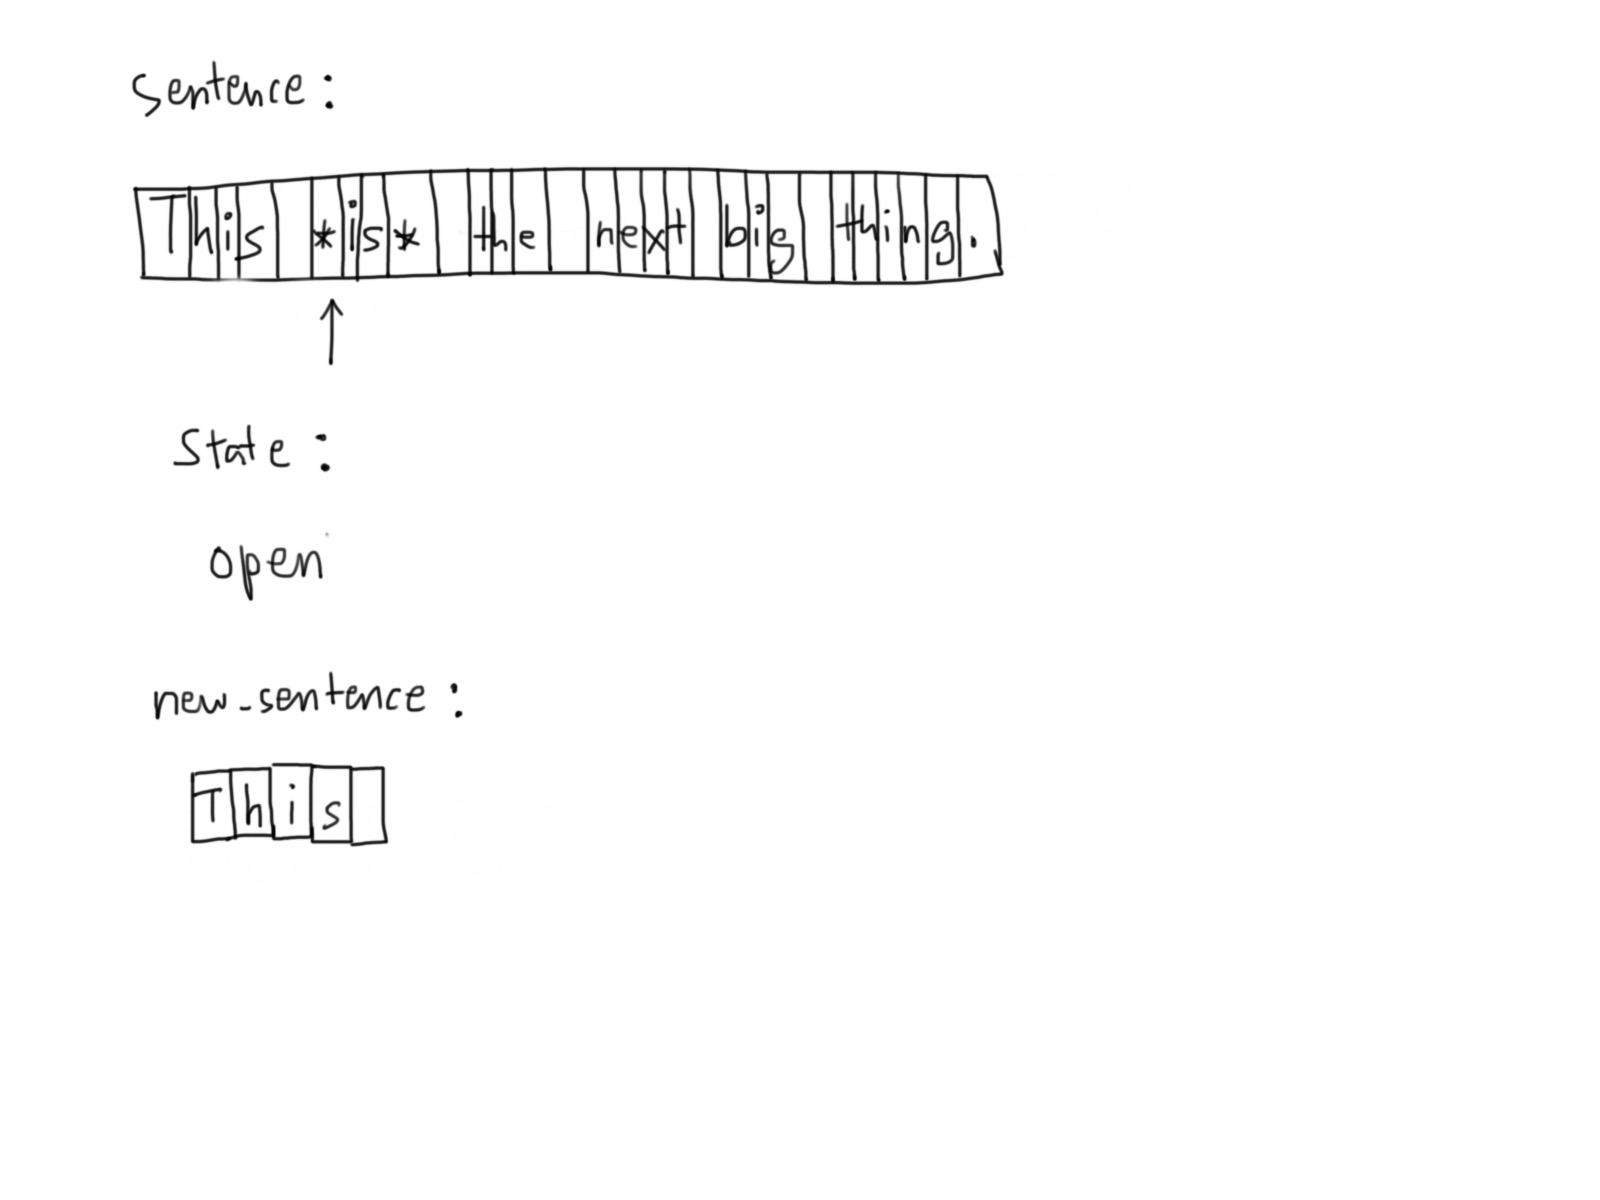 sentence:
This *is* the next big thing.
state:
open
new_sentence:
This